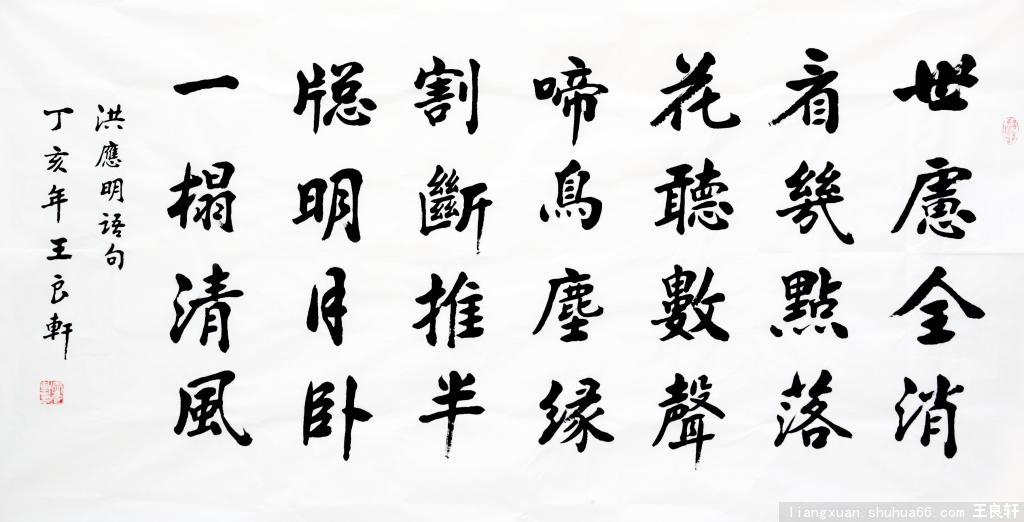 世慮全消
看幾點落
花聽數聲
啼鳥塵緣
割斷推半
牕明月卧
一榻清風
洪應明語句
丁亥年王良軒
liangxuan.shuhua66.com 王良轩